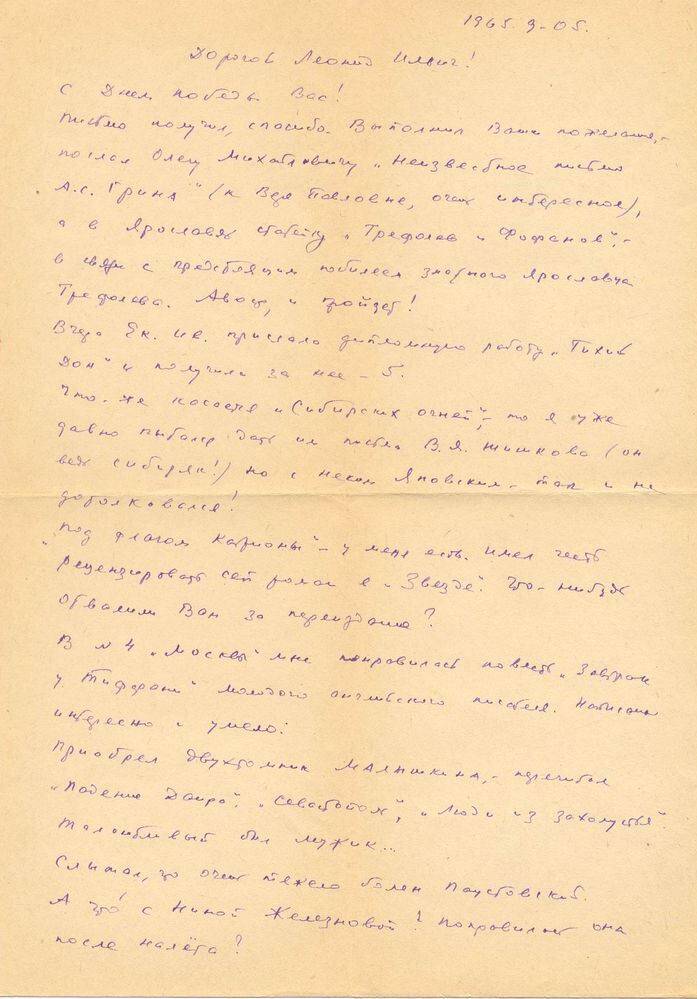 1965. 9-05.
Дорогой Леонид Ильич!
С Днем победы Вас!
Письмо получил, спасибо. Выполнил Ваши пожелания,-
послал Олегу Михайловичу „Неизвестное письмо
А.С. Грина" (к Вере Павловне, очень интересное),
а в Ярославль статейку „Трефолев и Фофанов",-
в связи с предстоящим юбилеем знатного ярославца
Трефолева. Авось, и пройдет!
Вчера Ек. Ив. прислала дипломную работу „Тихий
Дон" и получила за нее - 5.
Что-же касается „Сибирских огней",- то я уже
давно пытался дать им письма В.Я. Шишкова (он
ведь сибиряк!) но с неким Яновским - так и не
дотолковался!
„Под флагом Катрионы" - у меня есть. Имел честь
рецензировать сей роман в „Звезде". Что-нибудь
отвалили Вам за переиздание?
В № 4 „Москвы" мне понравилась повесть „Завтрак
у Тиффани" молодого английского писателя. Написано
интересно и умело.
Приобрел двухтомник Малышкина,- перечитал
„Падение Даира", „Севастополь", „Люди из захолустья".
Талантливый был мужик...
Слышал, что очень тяжело болен Паустовский.
А что с Ниной Железновой? Поправилась она
после налёта?